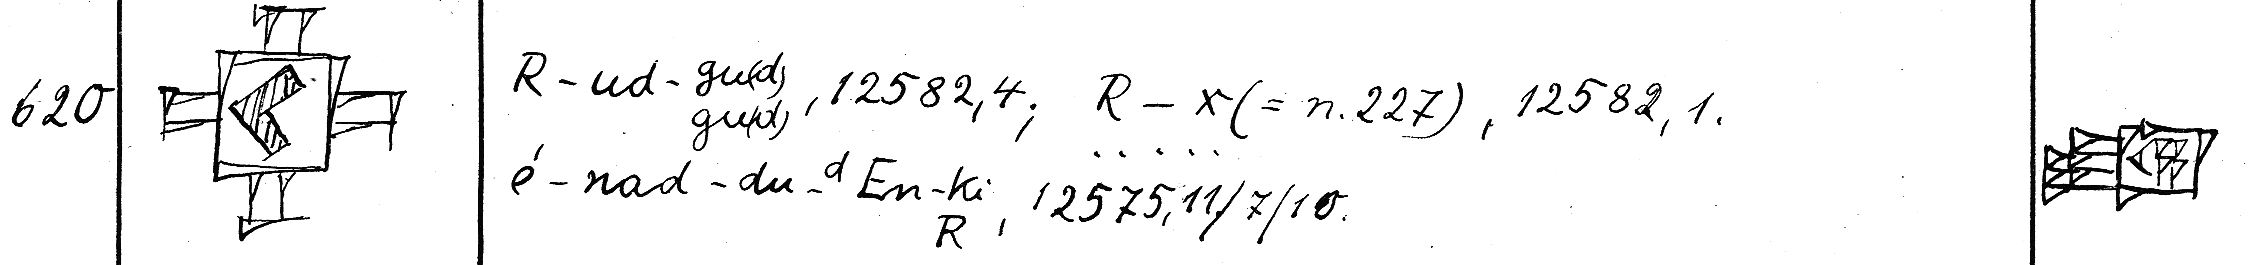 620
R-ud-gu(d), 12582,4; R-x(=n.227), 12582,1.
gu(d)
é-nad-du-d En-ki, 12575,11/7/10.
R